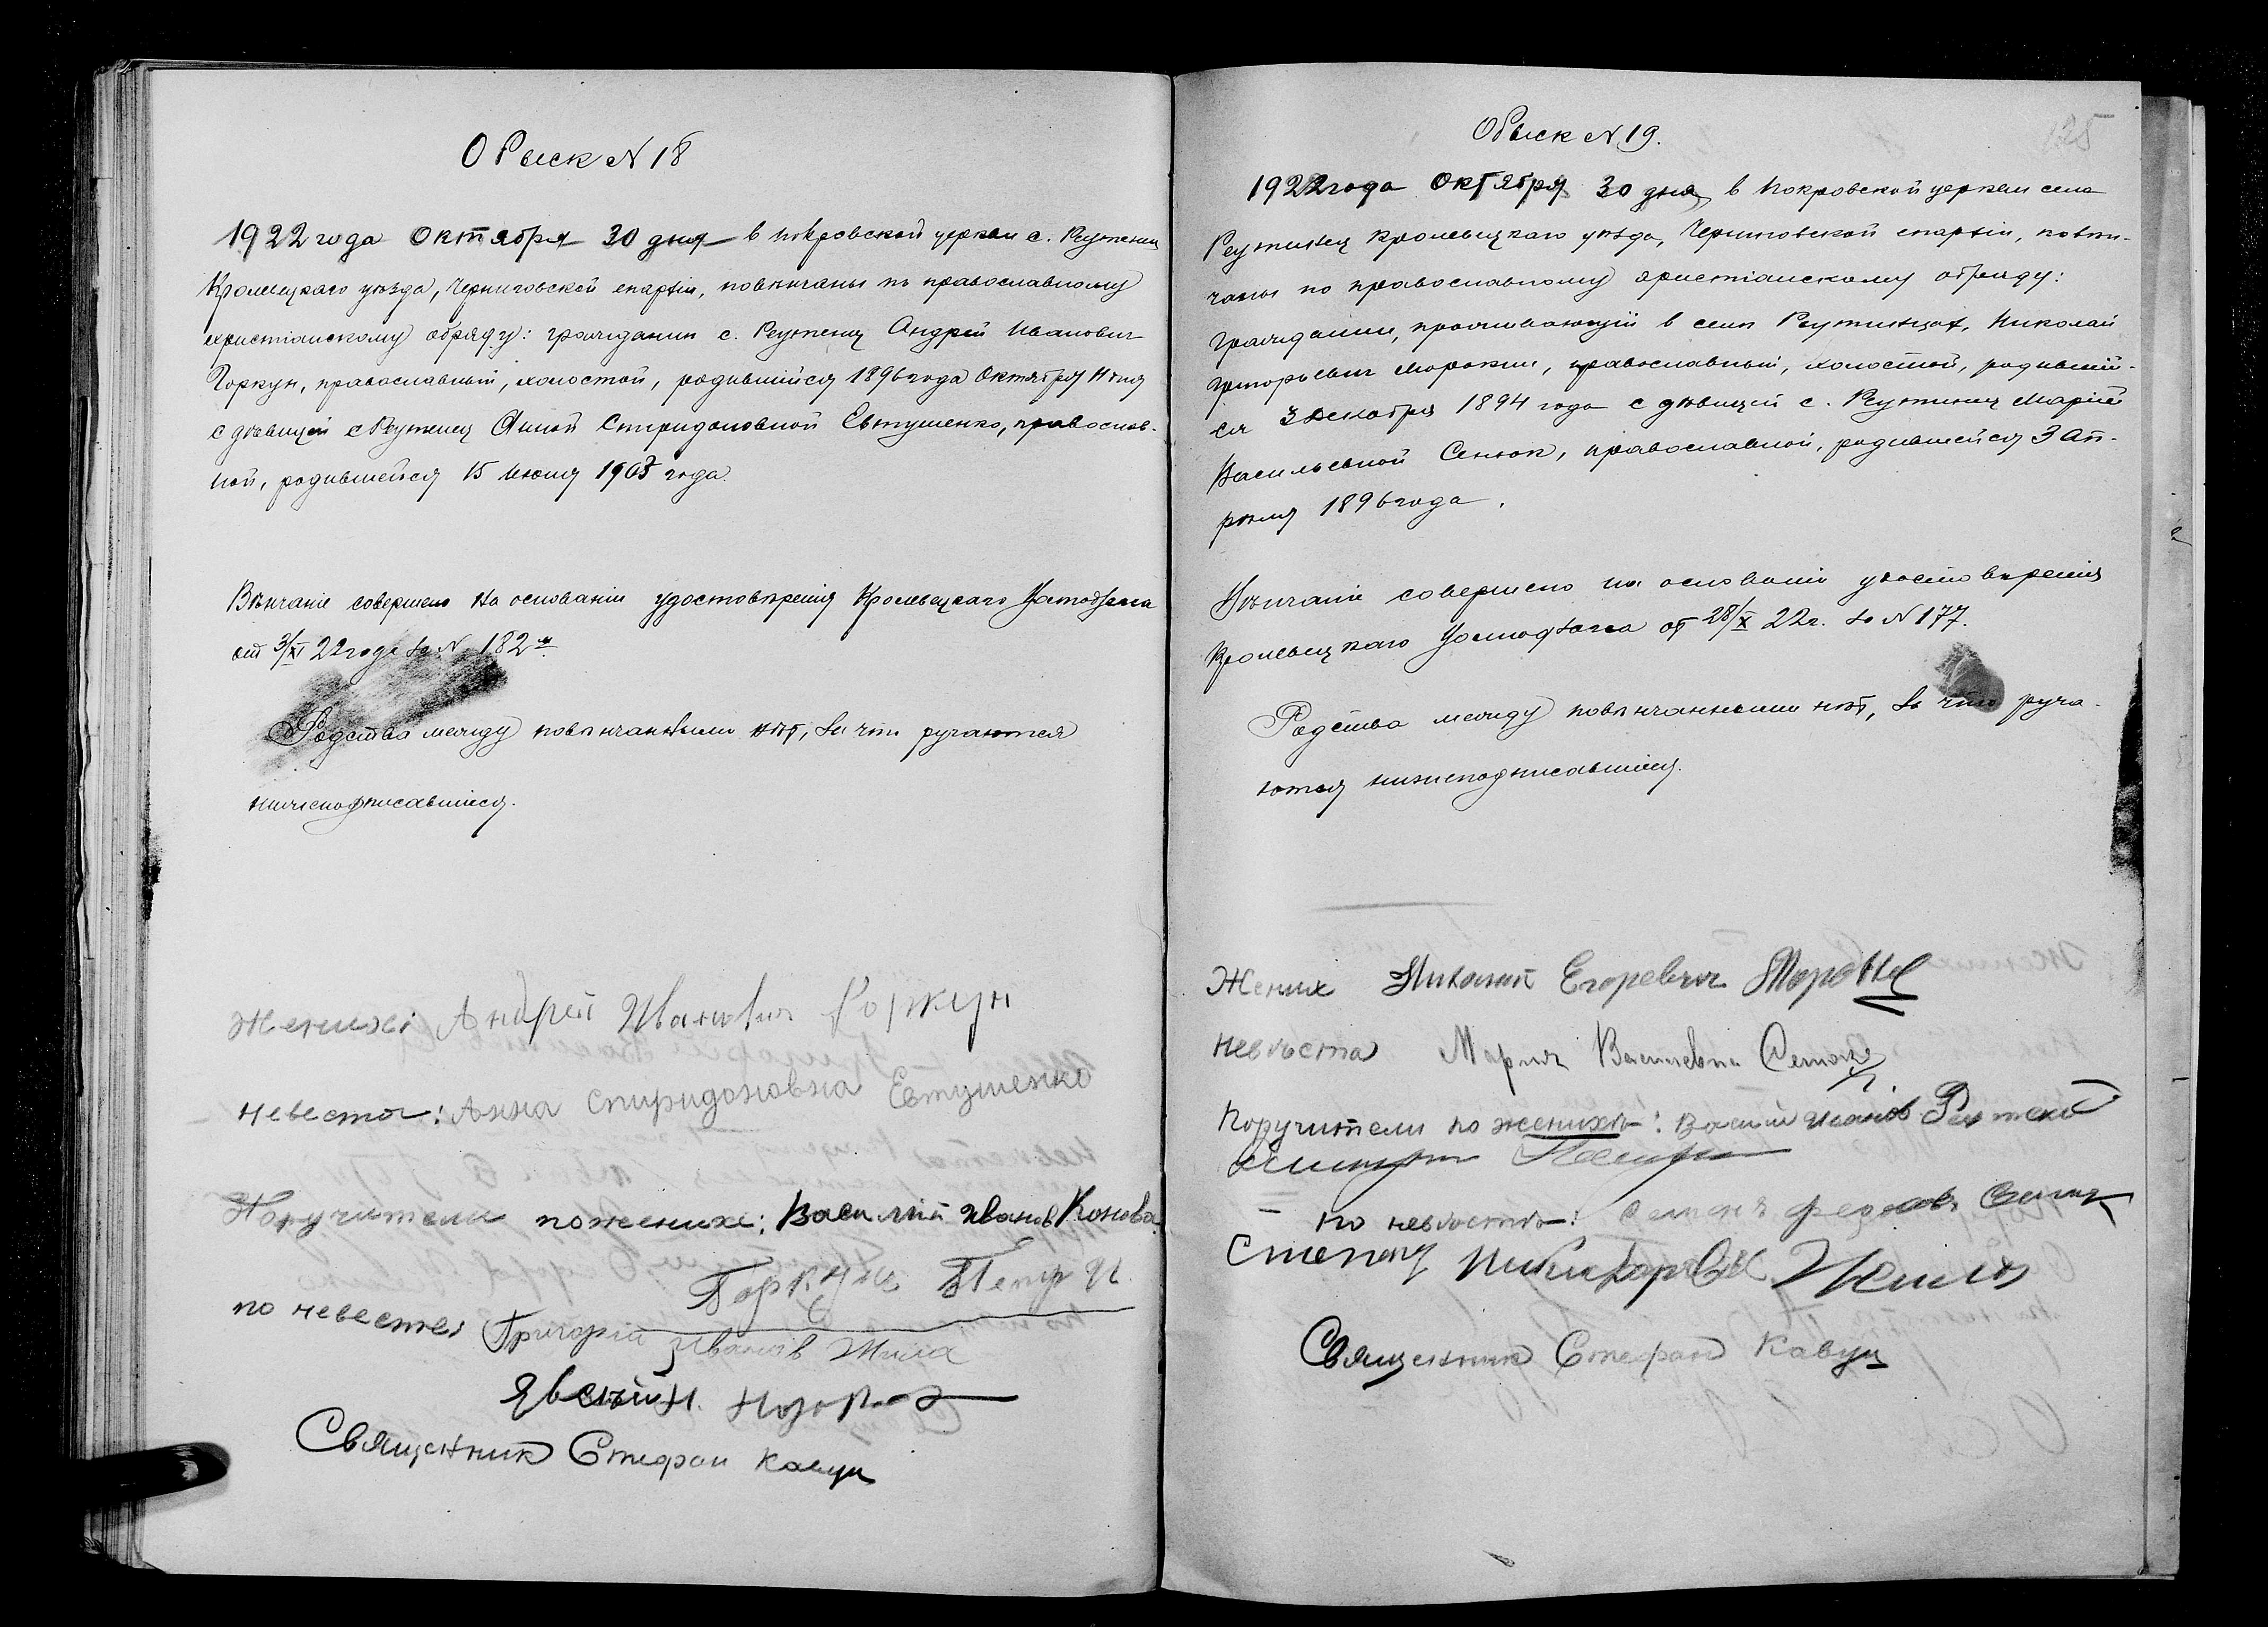 Обыск N 18
1922 года Октября 30 дня в Покровской церкви с. Реутинец
Кролевецкаго уѣзда, Черниговской епархіи, повѣнчаны по православному
христіанскому обряду: гражданин с. Реутинец Андрей Иванович
Горкун, православный, холостой, родившійся 1896 года Октября
с дѣвицей с Реутинец Анной Спиридоновной Евтушенко, православ-
ной, родившейся 15 Июня года.
Вѣнчаніе совершено На основаніи удостовѣренія Кролевецкаго
от 3/XI 22 года за N 182
Родства между повѣнчанными нѣт, За что ручаются
нижеподписавшіеся.
Жених: Андрей Иванович Горкун
невеста: Анна Спиридоновна Евтушенко
Поручители по женихе: Василий Иванов
Горкун Петр И.
по невесте: Григорій Иванов
Священник Стефан Кавун
125
Обыск N 19.
1922 года Октября 30 дня, в Покровской церкви села
Реутинец Кролевецкаго уѣзда, Черниговской епархіи, повѣн-
чаны по православному христіанскому обряду:
Гражданин, проживающій в селѣ Реутинцах, Николай
Григорьевич, православный, холостой, родивший-
ся 3 Декабря 1894 года с дѣвицей с. Реутинец Маріей
Васильевной Сенюк, православной, родившейся 3 Ап-
рѣля 1896 года.
Вѣнчаніе совершено на основаніи удостовѣренія
Кролевецкаго от 28/X 22 г. За N 177.
Родства между повѣнчанными нѣт, За что руча-
ются нижеподписавшіеся.
Жених Николай Егоревич
Невѣста Мария Васильевна Сенюк
Поручители по женихѣ:
по невѣстѣ:
Степан
Священник Стефан Кавун